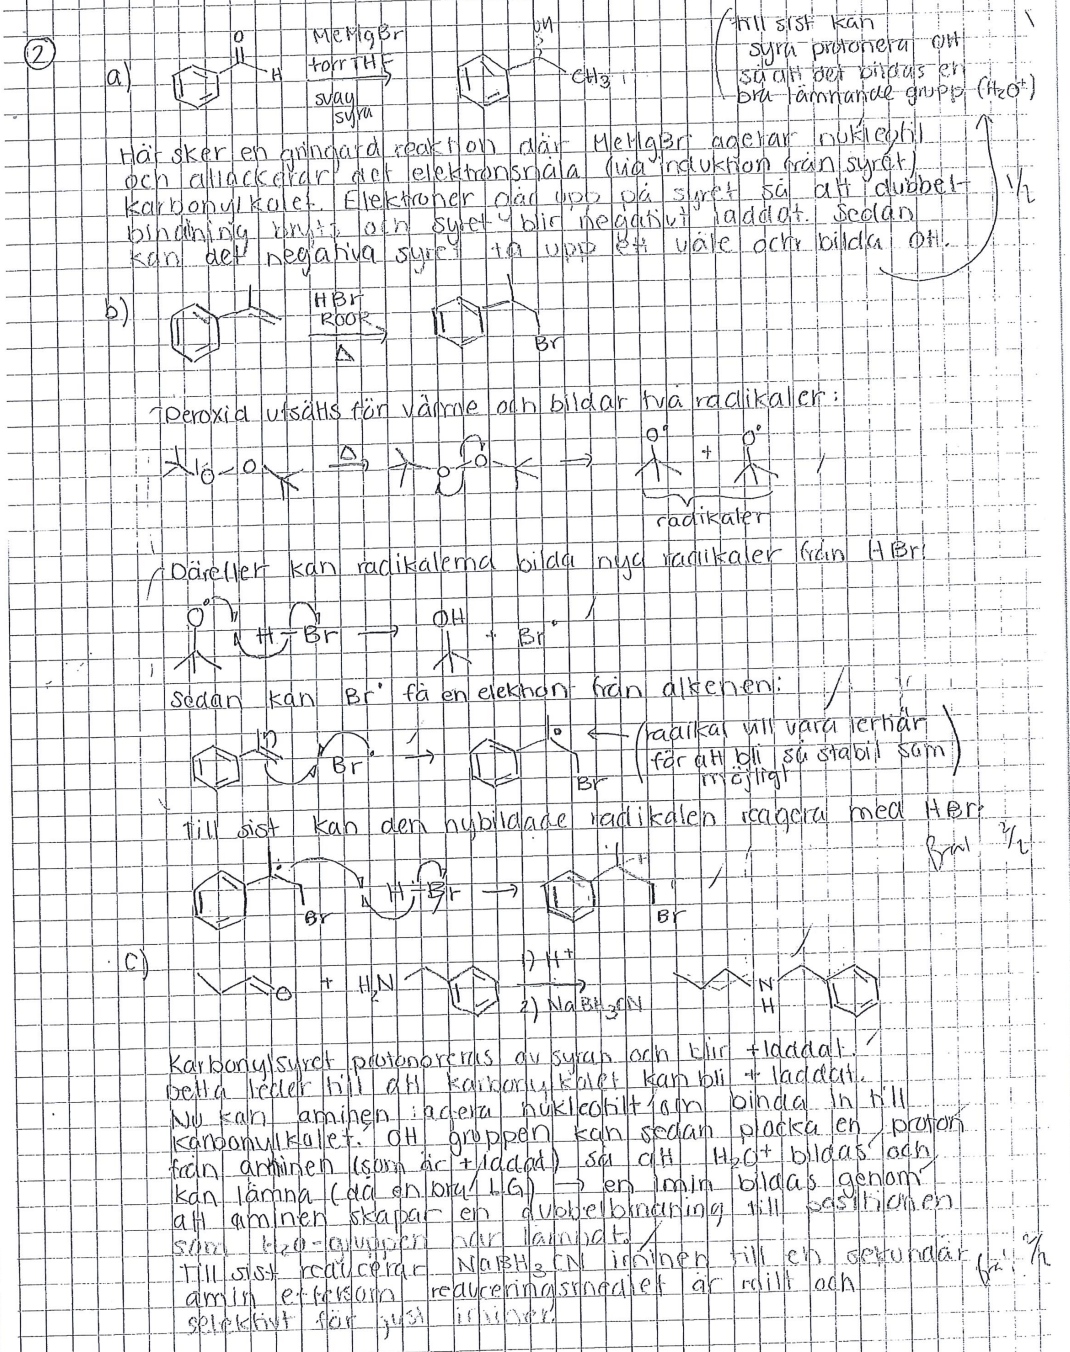 ②
a)
O
H
MeMgBr
torr THF
svag
syra
OH
CH3
(till sist kan
syra protonera OH
så att det bildas en
bra lämnande grupp (H2O+)
Här sker en gringard reaktion där MeMgBr agerar nukleofil
och attackerar det elektronsnåla (via induktion från syret)
karbonylkolet. Elektroner går upp på syret så att dubbel-
bindning bryts och syret blir negativt laddat. Sedan
kan det negativa syret ta upp ett väte och bilda OH.
1/2
b)
HBr
ROOR
Δ
Br
Peroxid utsätts för värme och bildar två radikaler:
O-O
Δ
O O
O• + O•
radikaler
Därefter kan radikalerna bilda nya radikaler från HBr:
O• H-Br → OH + Br•
Sedan kan Br• få en elektron från alkenen:
Br•
Br
(radikal vill vara tertiär
för att bli så stabil som
möjligt)
Till sist kan den nybildade radikalen reagera med HBr
Bra! 2/2
Br
H-Br
Br
c)
O + H2N
1) H+
2) NaBH3CN
N
H
Karbonylsyret protoneras av syran och blir +laddat.
Detta leder till att karbonylkolet kan bli + laddat.
Nu kan aminen agera nukleofilt och binda in till
karbonylkolet. OH gruppen kan sedan plocka en proton
från aminen (som är +laddad) så att H2O+ bildas och
kan lämna (då en bra LG) → en imin bildas genom
att aminen skapar en dubbelbindning till positionen
som H2O-gruppen har lämnat.
Till sist reducerar NaBH3CN iminen till en sekundär
amin eftersom reduceringsmedlet är milt och
selektivt för just iminer.
Bra! 2/2